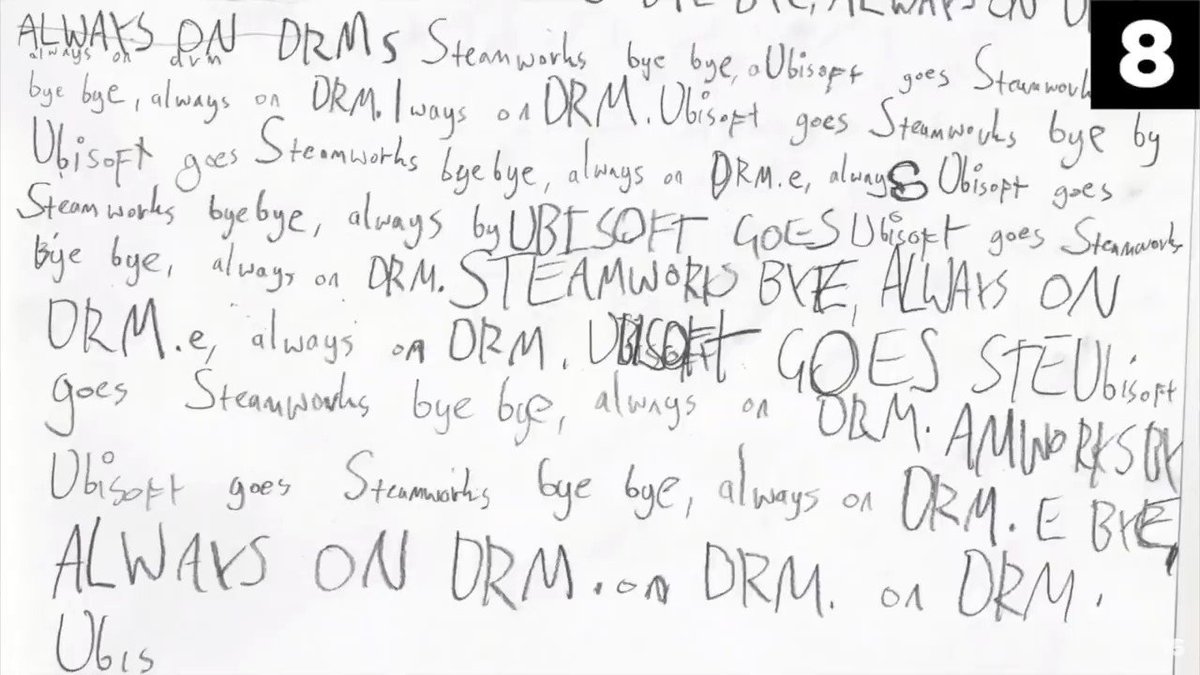 BYE BYE, ALWAYS ON D
8
ALWAYS ON DRMs Steamworks bye bye, aUbisoft goes Steamwork
always on drm
bye bye, always on DRM. lways on DRM. Ubisoft goes Steamworks bye by
Ubisoft goes Steamworks bye bye, always on DRM.e, always Ubisoft goes
Steamworks bye bye, always by UBISOFT GOES Ubisoft goes Steamworks
bye bye, always on DRM. STEAMWORKS BYE, ALWAYS ON
DRM.e, always on DRM. UBISOFT GOES STEUbisoft
goes Steamworks bye bye, always on DRM. AMWORKS BY
Ubisoft goes Steamworks bye bye, always on DRM. E BYE,
ALWAYS ON DRM. on DRM. on DRM.
Ubis